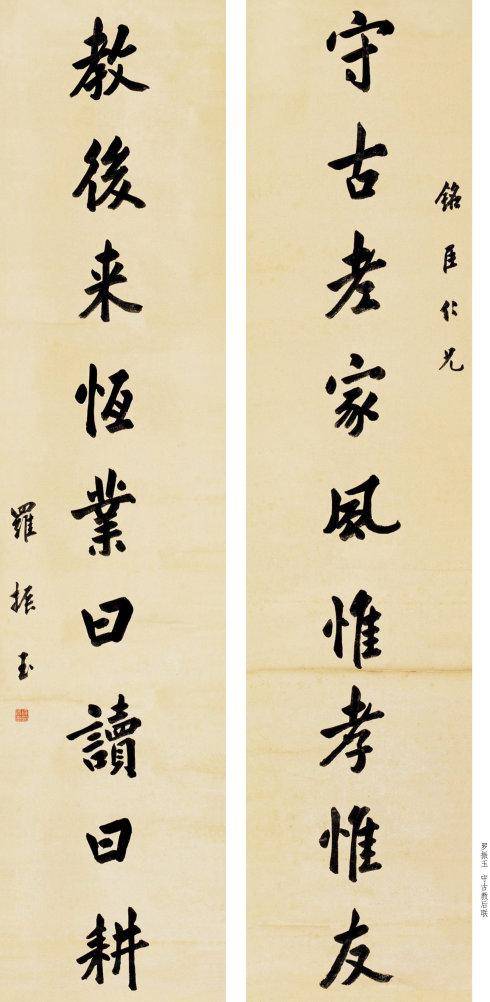 銘臣仁兄
守古老家風惟孝惟友
教後来恆業曰讀曰耕
羅振玉
罗振玉 守古教后联